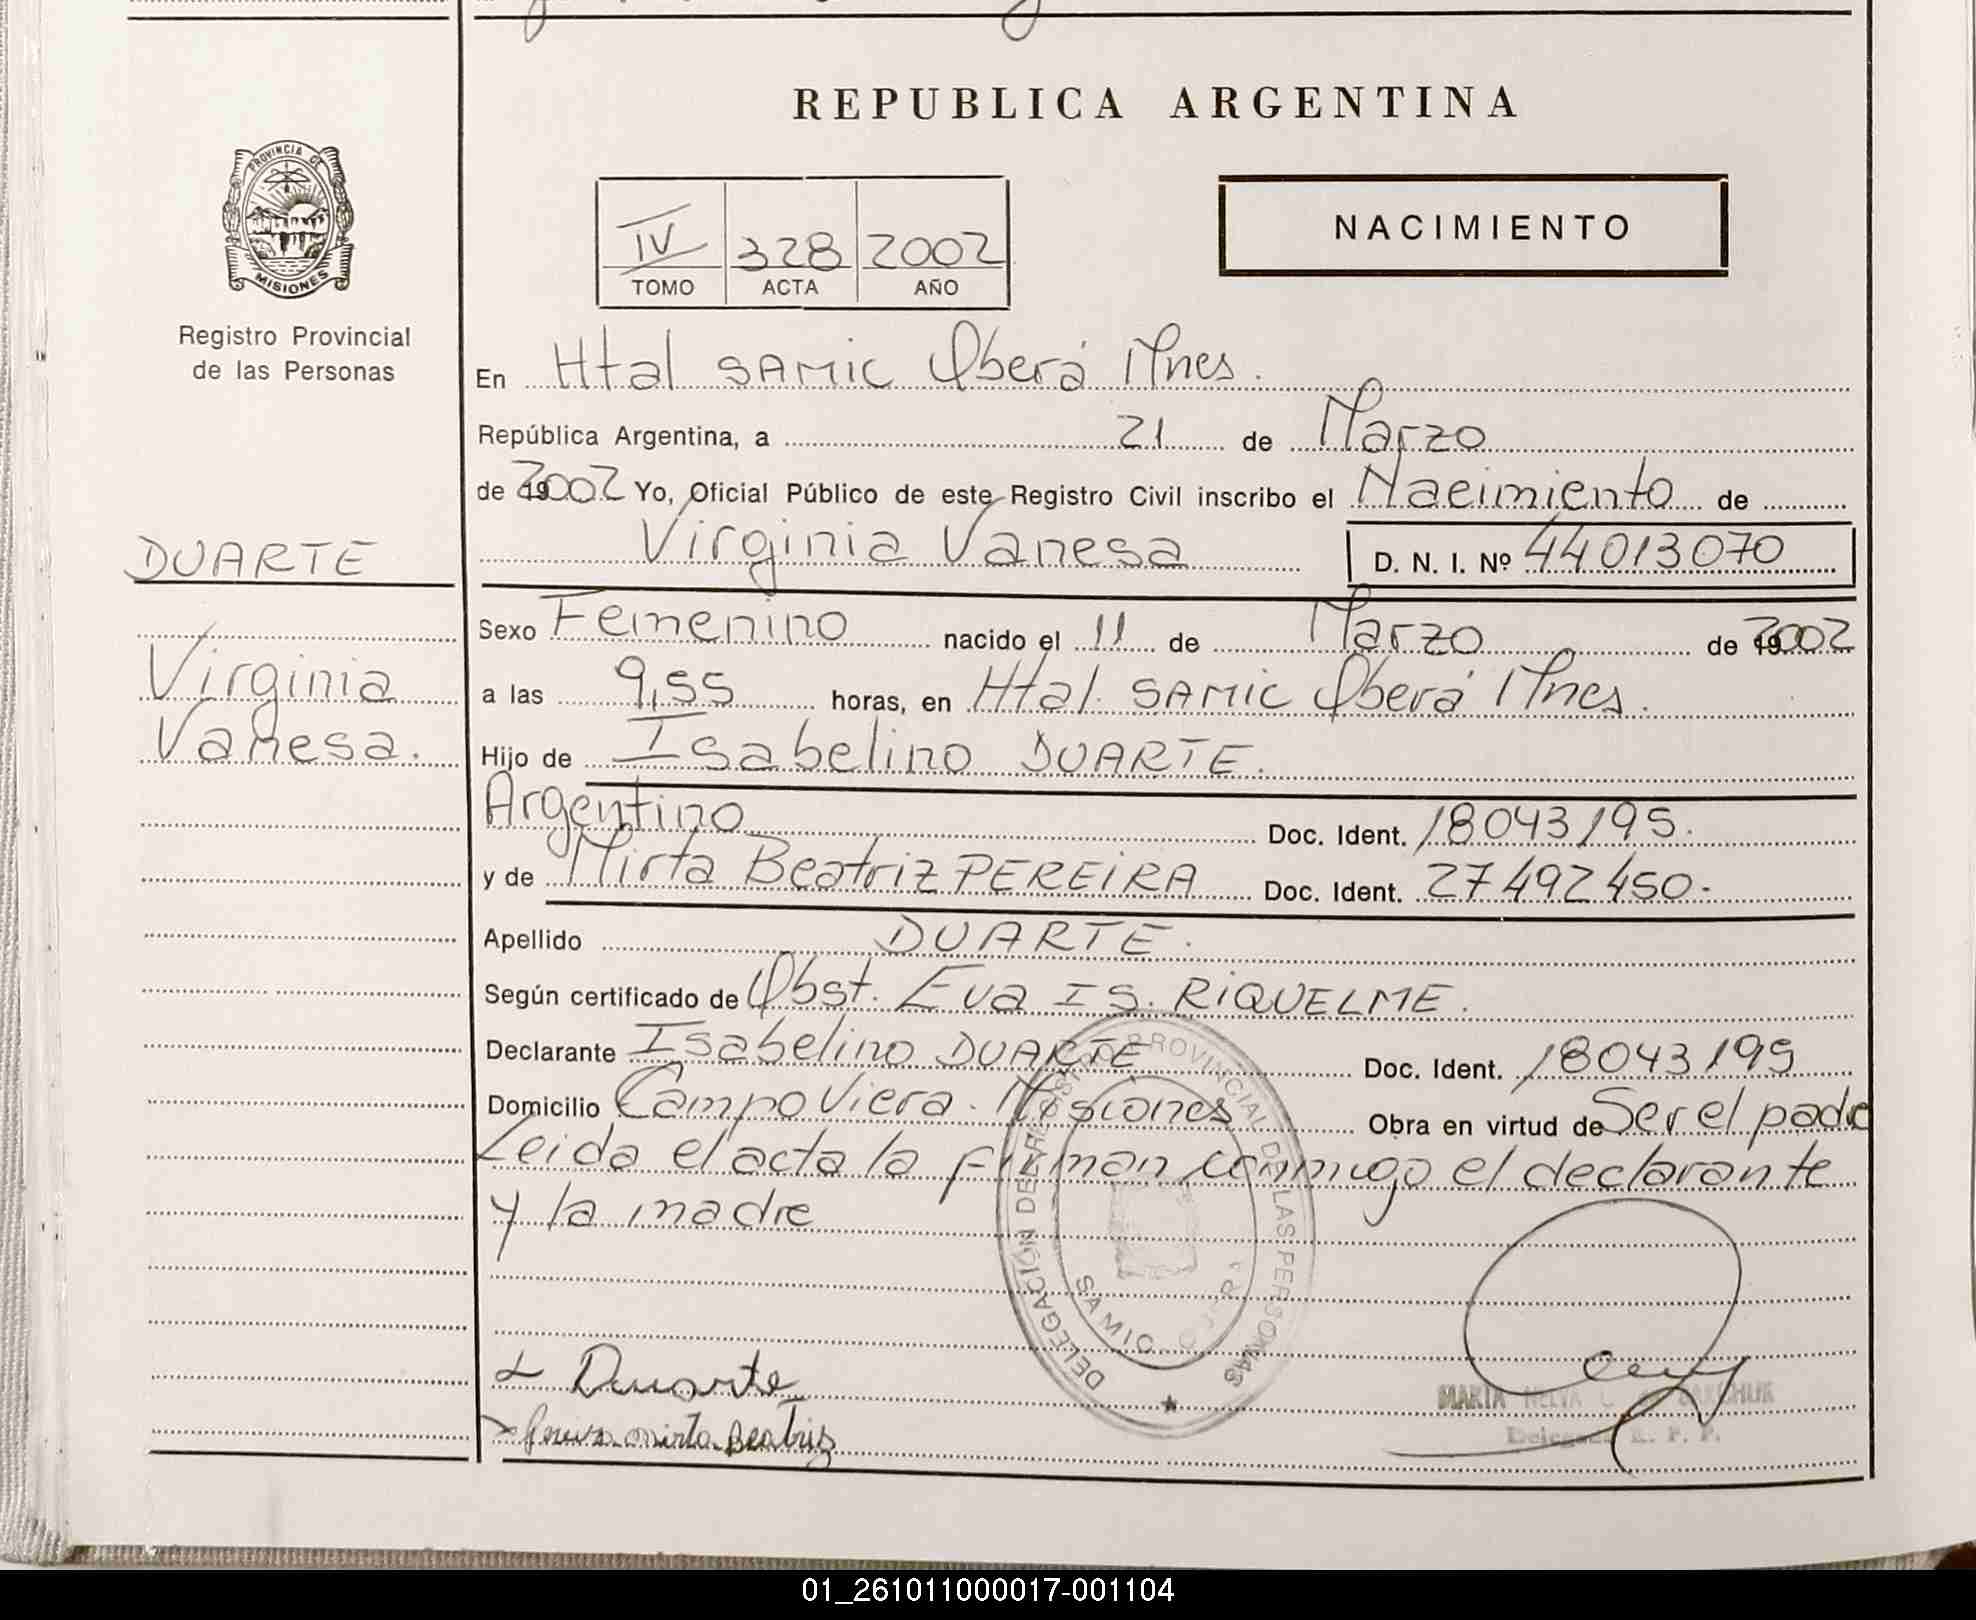 REPUBLICA ARGENTINA
PROVINCIA DE
MISIONES
Registro Provincial
de las Personas
IV 328 2002
TOMO ACTA AÑO
NACIMIENTO
En Htal SAMIC Oberá Mnes.
República Argentina, a 21 de Marzo
de 2002 Yo, Oficial Público de este Registro Civil inscribo el Nacimiento de
Virginia Vanesa D. N. I. Nº 44013070
DUARTE
Virginia
Vanesa.
Sexo Femenino nacido el 11 de Marzo de 2002
a las 9,55 horas, en Htal. SAMIC Oberá Mnes.
Hijo de Isabelino DUARTE.
Argentino Doc. Ident. 18043195.
y de Mirta Beatriz PEREIRA Doc. Ident. 27492450.
Apellido DUARTE.
Según certificado de Obst. Eva IS. RIQUELME.
Declarante Isabelino DUARTE Doc. Ident. 18043195
Domicilio Campo Viera. Misiones Obra en virtud de Ser el padre
Leida el acta la firman conmigo el declarante
y la madre
DELEGACIÓN DEL REGISTRO PROVINCIAL DE LAS PERSONAS
SAMIC
Duarte
Pereira mirta Beatriz
MARIA NELVA
Delegada R. P. P.
01_261011000017-001104